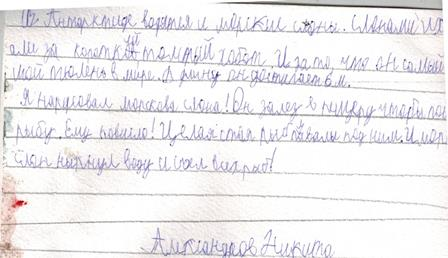 В Антарктиде водятся и морские слоны. Слонами их
али за короткий толстый хобот. И за то, что он самый
шой тюлень в мире. В длину он достигает 6 м.
Я нарисовал морскова слона! Он залез в пещеру чтобы пой
рыбу. Ему повезло! Целая стая рыб плавала под ним. И мор
слон нырнул воду и съел всех рыб!
Александров Никита